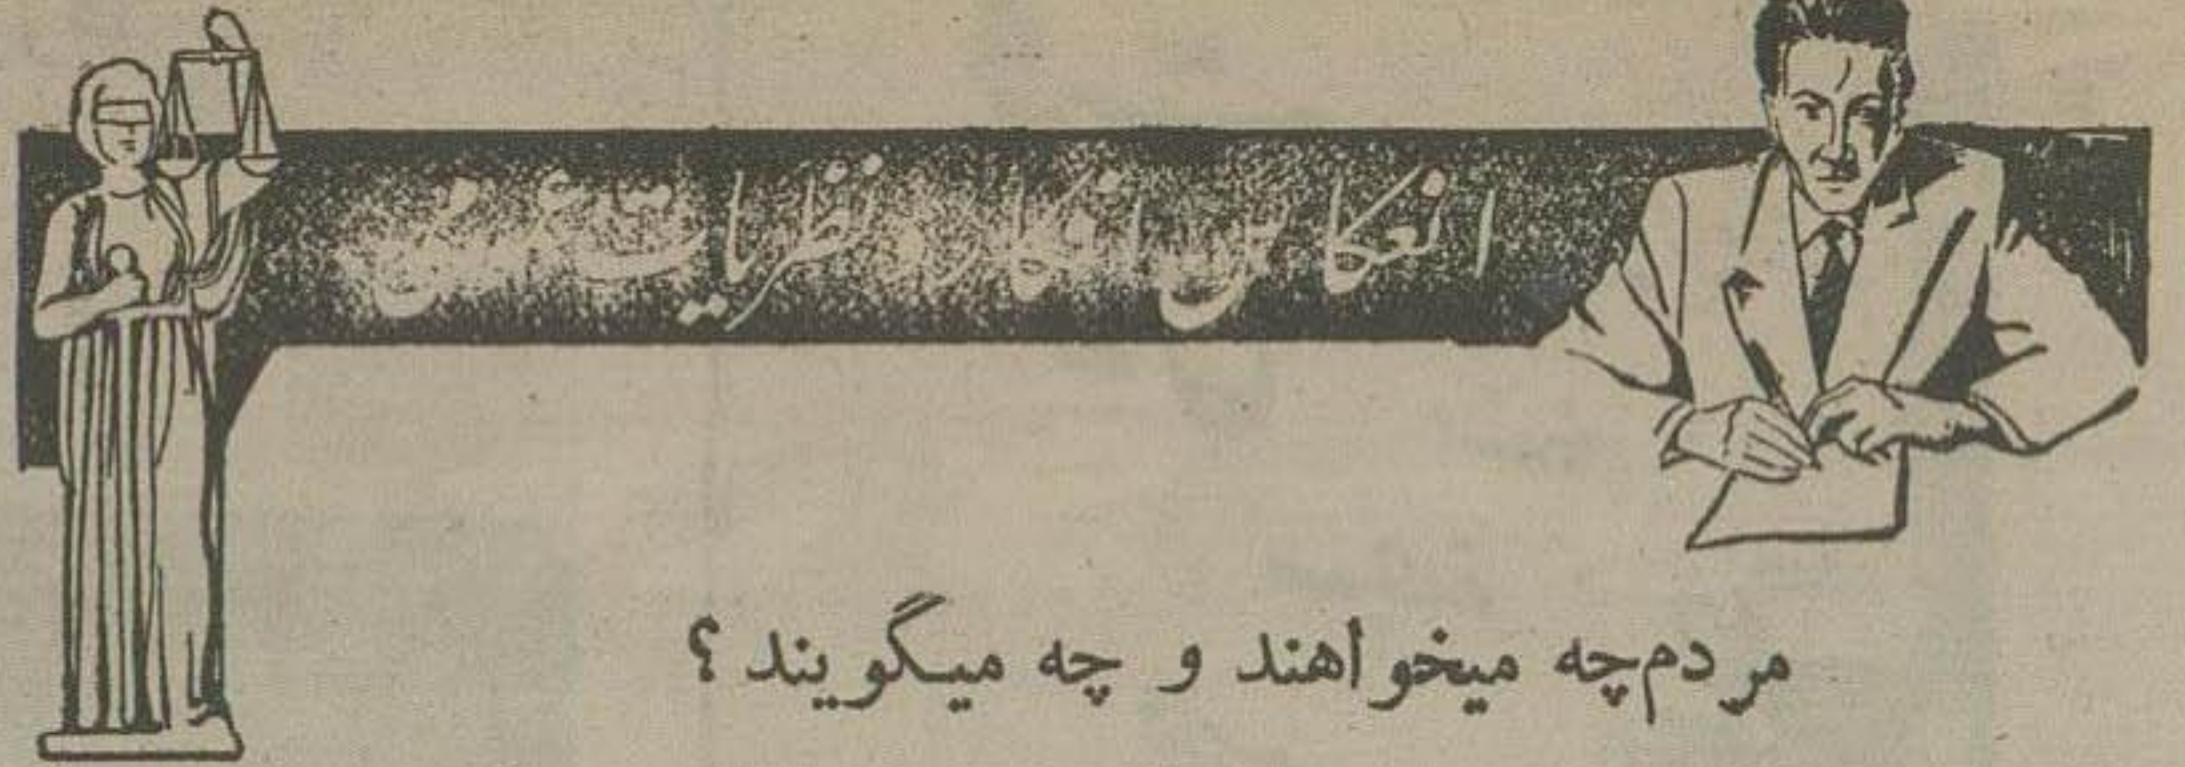 انعکاس افکار و نظریات عمومی
مردم چه میخواهند و چه میگویند؟